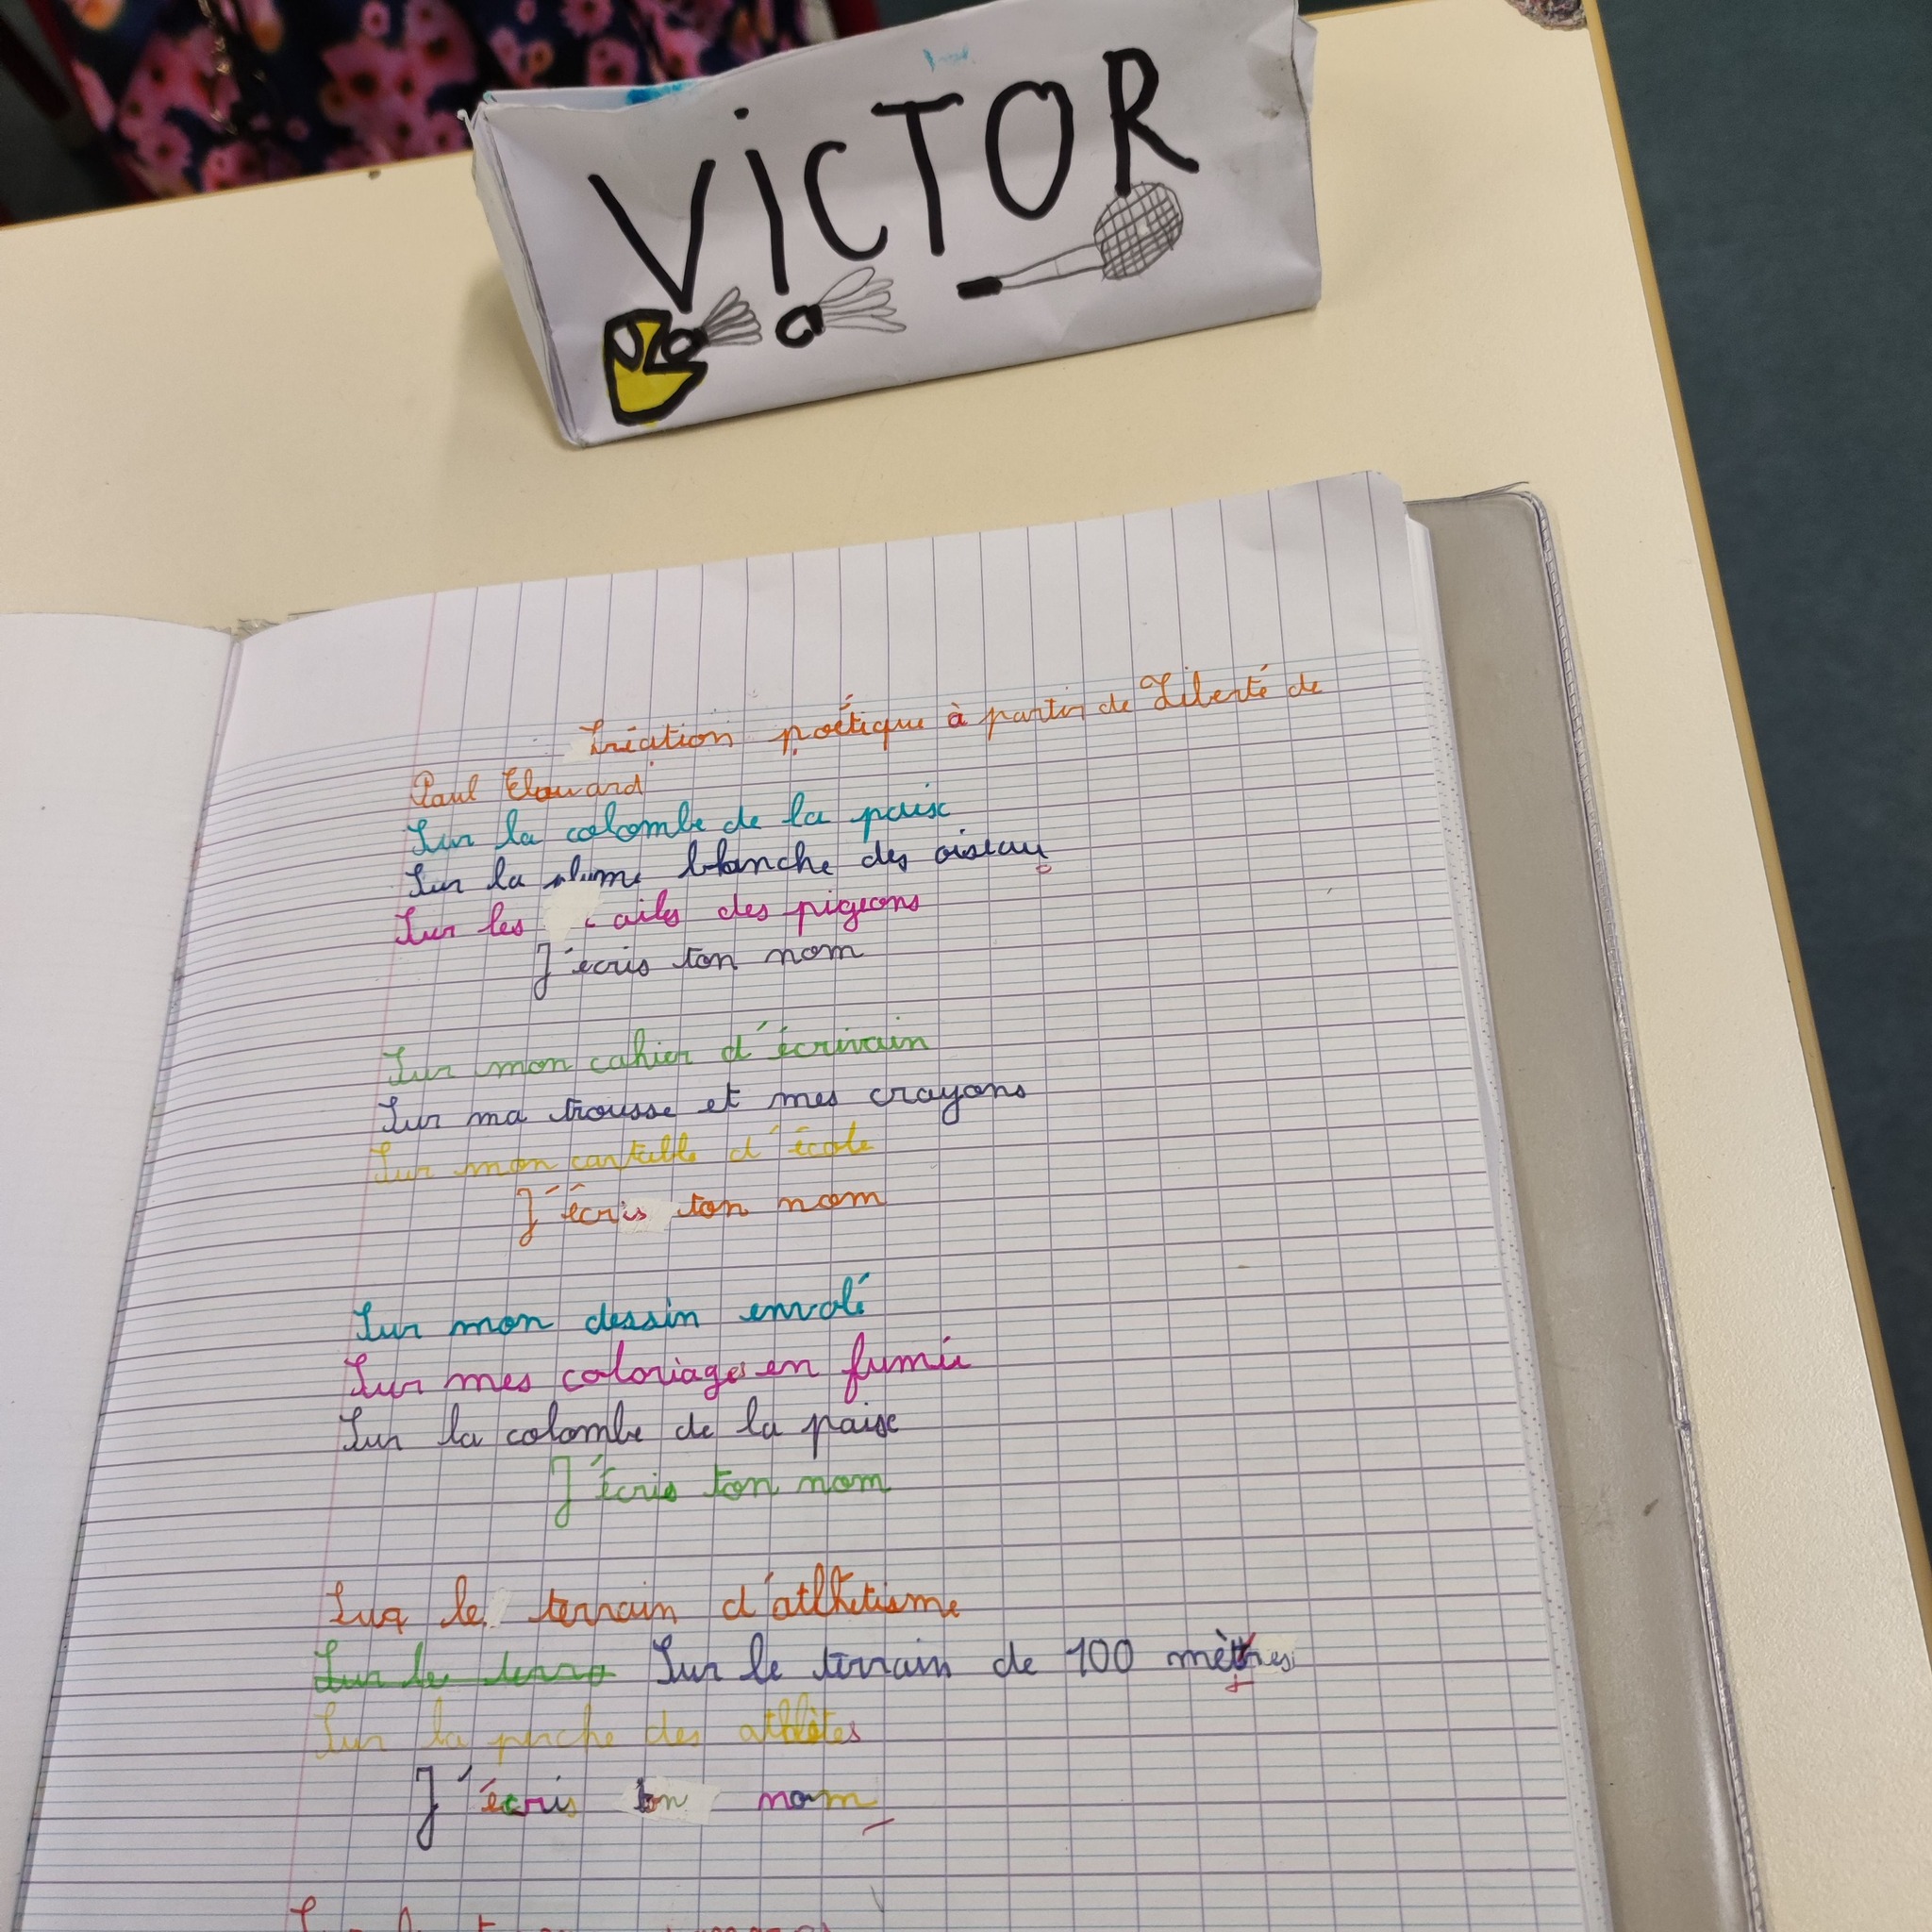 VICTOR
Création poétique à partir de Liberté de
Paul Elouard
Sur la colombe de la paix
Sur la plume blanche des oiseau
Sur les ailes des pigeons
J'écris ton nom
Sur mon cahier d'écrivain
Sur ma trousse et mes crayons
Sur mon cartable d'école
J'écris ton nom
Sur mon dessin envolé
Sur mes coloriages en fumée
Sur la colombe de la paix
J'écris ton nom
Sur le terrain d'athlétisme
Sur le terra Sur le terrain de 100 mètres
Sur la perche des athlètes
J'écris ton nom